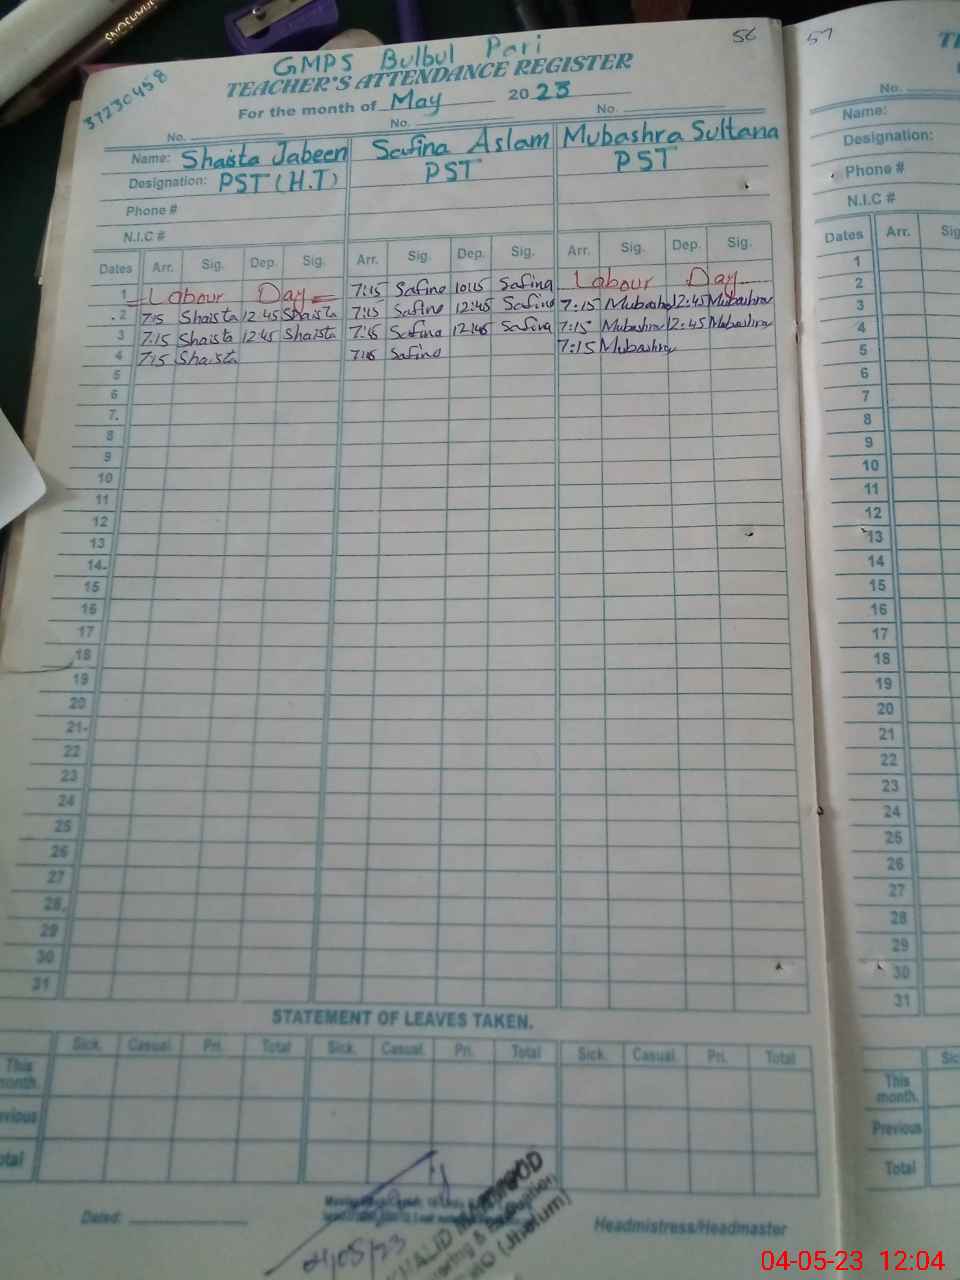 56
57
GMPS Bulbul Pari
37230458
TEACHER'S ATTENDANCE REGISTER
For the month of May 2023
No. No. No.
Name: Shaista Jabeen Safina Aslam Mubashra Sultana
Designation: PST (H.T) PST PST
Phone #
N.I.C #
Dates Arr. Sig. Dep. Sig. Arr. Sig. Dep. Sig. Arr. Sig. Dep. Sig.
1 Labour Day 7:15 Safina 10:15 Safina Labour Day
2 7:15 Shaista 12:45 Shaista 7:15 Safina 12:45 Safina 7:15 Mubashra 12:45 Mubashra
3 7:15 Shaista 12:45 Shaista 7:15 Safina 12:45 Safina 7:15 Mubashra 12:45 Mubashra
4 7:15 Shaista 7:15 Safina 7:15 Mubashra
5
6
7
8
9
10
11
12
13
14
15
16
17
18
19
20
21
22
23
24
25
26
27
28
29
30
31
STATEMENT OF LEAVES TAKEN.
Sick. Casual. Pri. Total Sick. Casual. Pri. Total Sick. Casual. Pri. Total
This month.
Dated:
04/05/23
Headmistress/Headmaster
KHALID MAHMOOD
(Jhelum)
No.
Name:
Designation:
Phone #
N.I.C #
Dates Arr.
1
2
3
4
5
6
7
8
9
10
11
12
13
14
15
16
17
18
19
20
21
22
23
24
25
26
27
28
29
30
31
This month.
Previous
Total
04-05-23 12:04